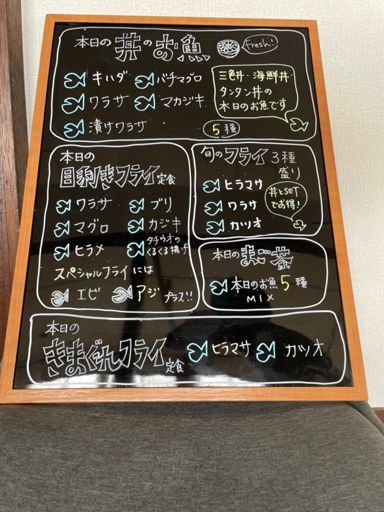 本日の 丼のお魚 fresh!
キハダ バチマグロ
ワラサ マカジキ
漬けワラサ
三色丼・海鮮丼・
タンタン丼の
本日のお魚です
5種
本日の
目利きフライ定食
ワラサ ブリ
マグロ カジキ
ヒラメ タチウオの
くるくる揚げ
スペシャルフライには
エビ アジ プラス!!
旬のフライ3種
盛り
ヒラマサ
ワラサ
カツオ
丼とSET
でお得!
本日のまご茶
本日のお魚5種
MIX
本日の
きまぐれフライ定食
ヒラマサ カツオ